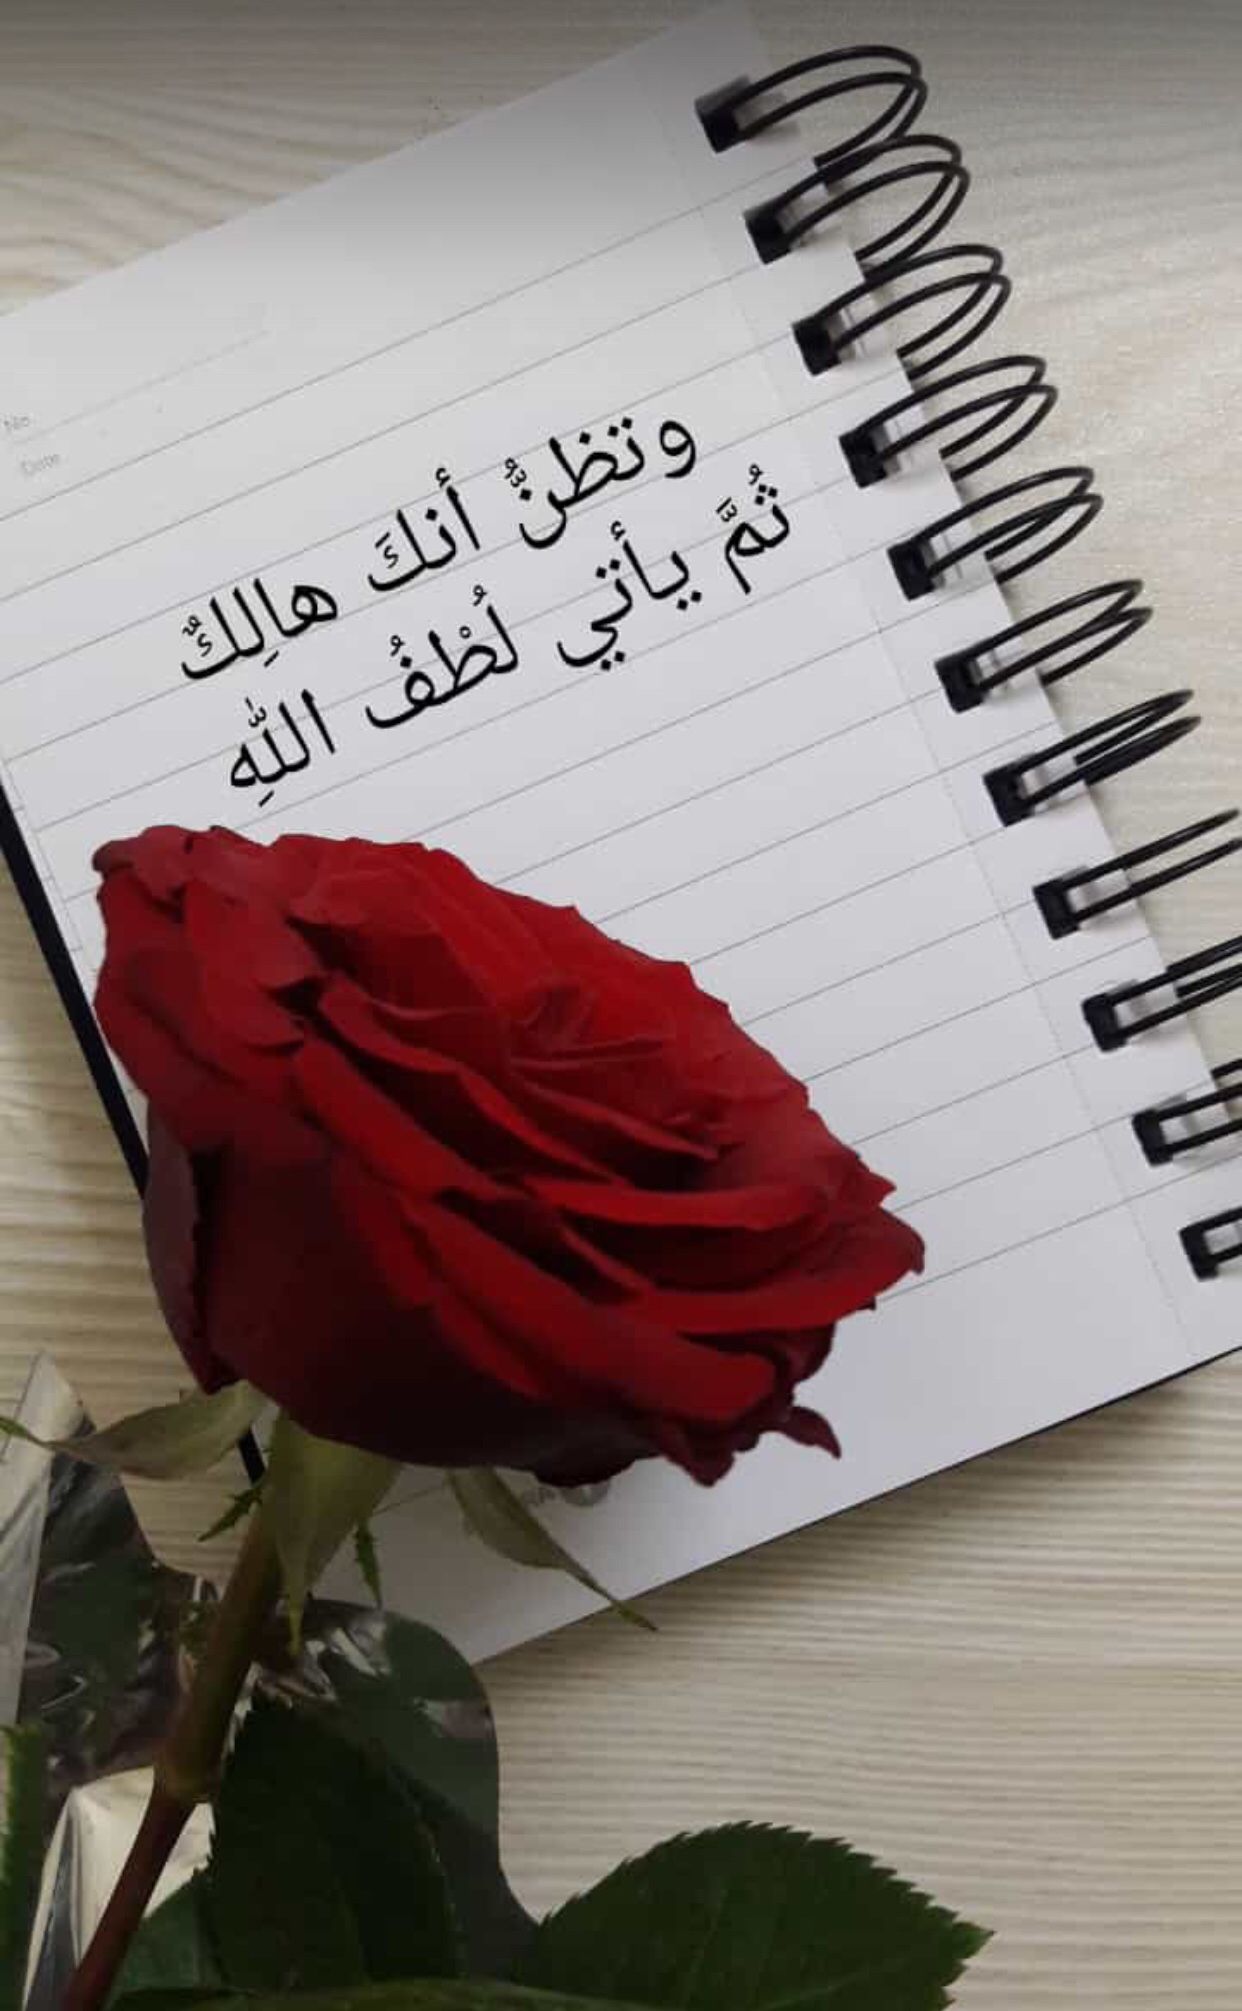 No.
Date
وتظنُّ أنكَ هالِكٌ
ثُمَّ يأتي لُطْفُ اللّٰهِ